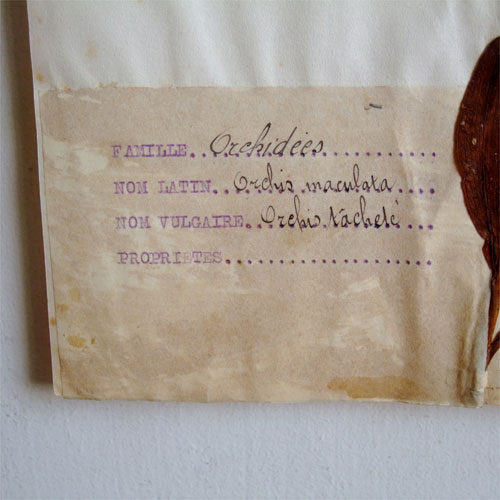 FAMILLE..Orchidées............
NOM LATIN..Orchis maculata....
NOM VULGAIRE..Orchis tacheté...
PROPRIETES.....................